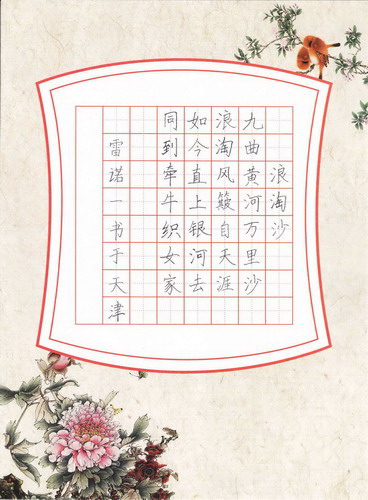 浪淘沙
九曲黄河万里沙
浪淘风簸自天涯
如今直上银河去
同到牵牛织女家
雷诺一书于天津